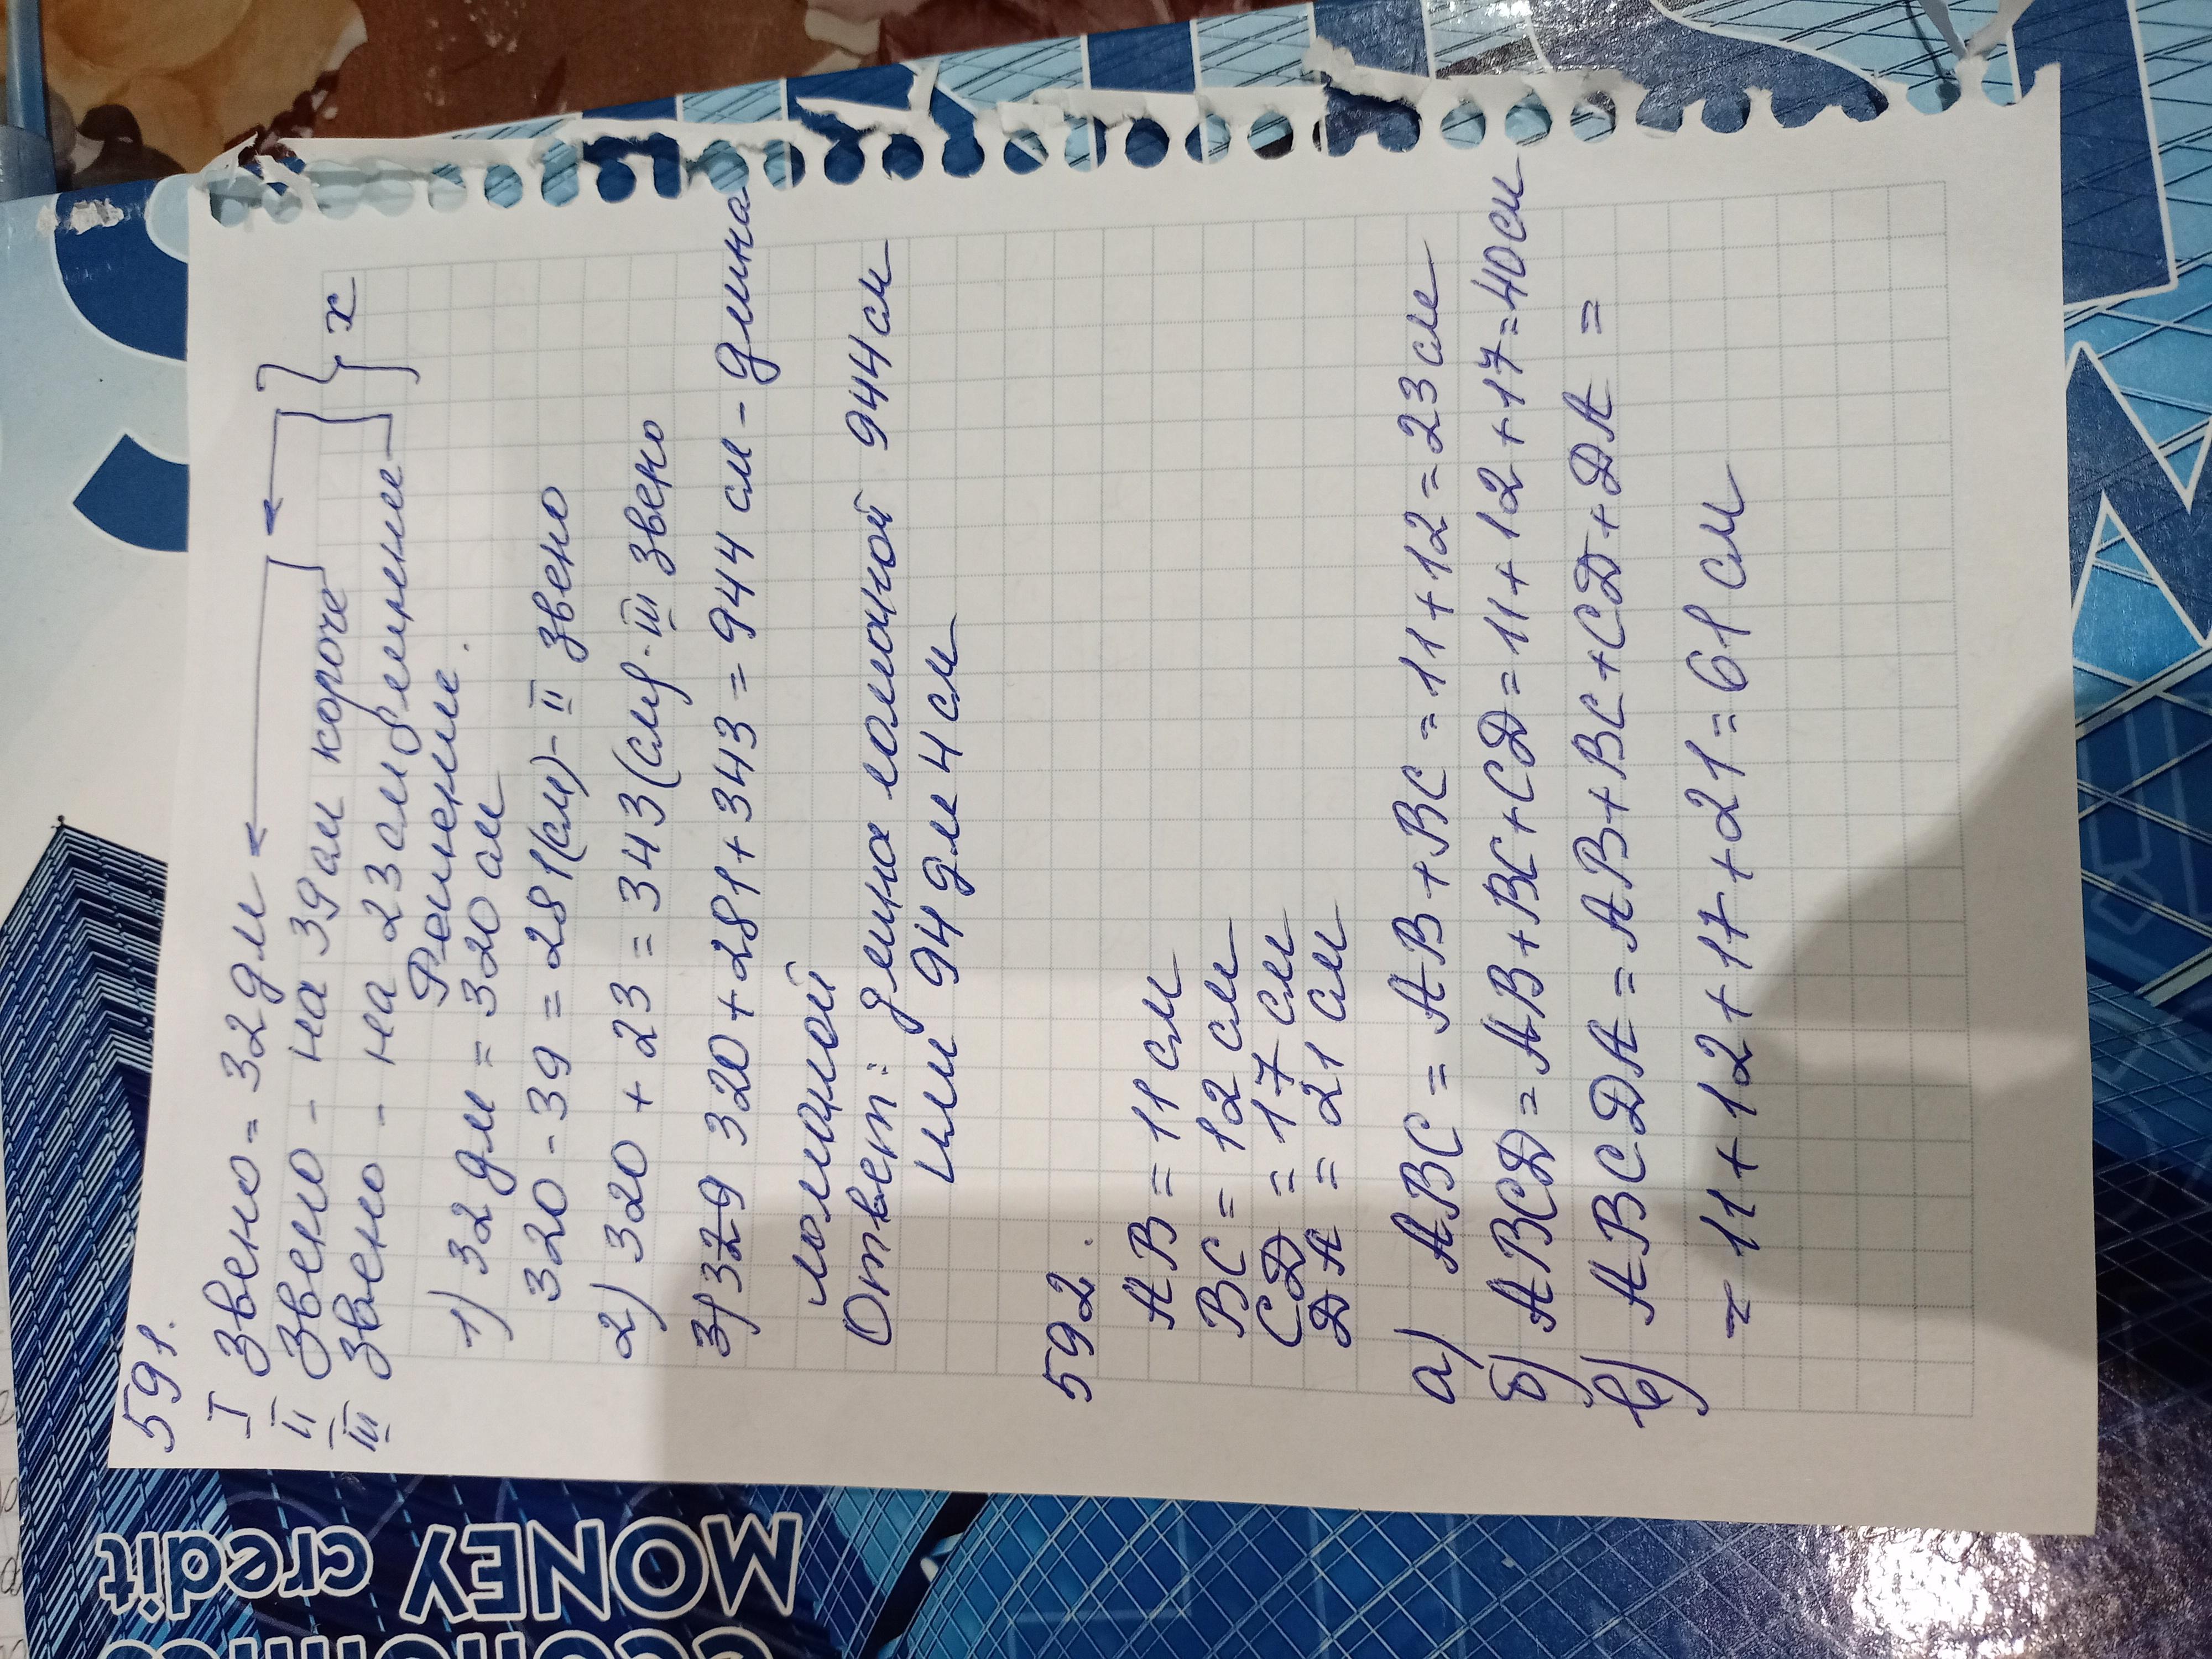 591.
I звено = 32 дм
II звено - на 39 см короче
III звено - на 23 см длиннее
} x
Решение.
1) 32 дм = 320 см
320 - 39 = 281 (см) - II звено
2) 320 + 23 = 343 (см) - III звено
3) 329 320 + 281 + 343 = 944 см - длина
ломаной
Ответ: длина ломаной 944 см
или 94 дм 4 см
592.
AB = 11 см
BC = 12 см
CD = 17 см
DA = 21 см
а) ABC = AB + BC = 11 + 12 = 23 см
б) ABCD = AB + BC + CD = 11 + 12 + 17 = 40 см
в) ABCDA = AB + BC + CD + DA =
= 11 + 12 + 17 + 21 = 61 см
MONEY
credit